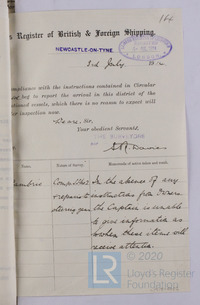 164
Register of British & Foreign Shipping.
NEWCASTLE-ON-TYNE
3rd July
compliance with the instructions contained in Circular
beg to report the arrival in this district of the
mentioned vessels, which there is no reason to expect will
our inspection now.
Dear Sir,
Your obedient Servants,
THE SURVEYORS
Name.
Extent of Survey.
Memoranda of intended repairs and remarks.
Cambria
In the absence of any
repairs to
instructions from Owners
steering gear
the Captain is unable
to give information as
to when these items will
receive attention.
© 2020
Lloyd's Register
Foundation